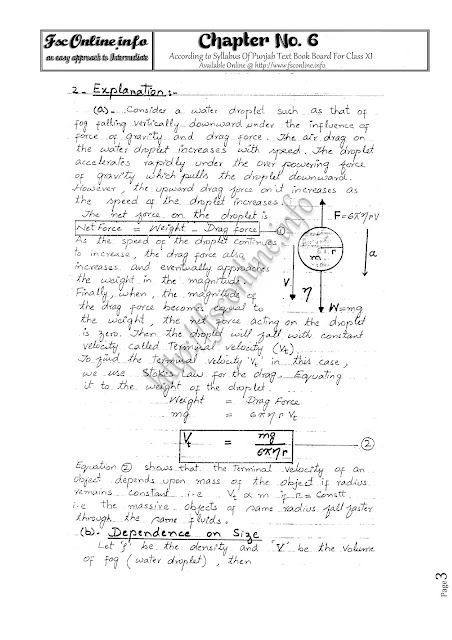 FscOnline.info
an easy approach to Intermediate
Chapter No. 6
According to Syllabus Of Punjab Text Book Board For Class XI
Available Online @ http://www.fsconline.info
2- Explanation:-
(a)- Consider a water droplet such as that of
fog falling vertically downward under the influence of
force of gravity and drag force. The air drag on
the water droplet increases with speed. The droplet
accelerates rapidly under the over powering force
of gravity which pulls the droplet downward.
However, the upward drag force on it increases as
the speed of the droplet increases.
The net force on the droplet is
Net Force = Weight - Drag force ①
As the speed of the droplet continues
to increase, the drag force also
increases and eventually approaches
the weight in the magnitude.
Finally, when, the magnitude of
the drag force becomes equal to
the weight, the net force acting on the droplet
is zero. Then the droplet will fall with constant
velocity called Terminal velocity (Vt)
F=6πηrv
r
m
a
V
η
W=mg
To find the Terminal velocity Vt in this case,
we use Stokes Law for the drag. Equating
it to the weight of the droplet.
Weight = Drag Force
mg = 6πηr Vt
Vt = mg/6πηr ②
Equation ② shows that the Terminal velocity of an
object depends upon mass of the object if radius
remains constant i.e Vt α m if r = Constt
i.e the massive objects of same radius fall faster
through the same fluids.
(b). Dependence on Size
Let 'ρ' be the density and 'V' be the volume
of fog (water droplet), then
Page 3